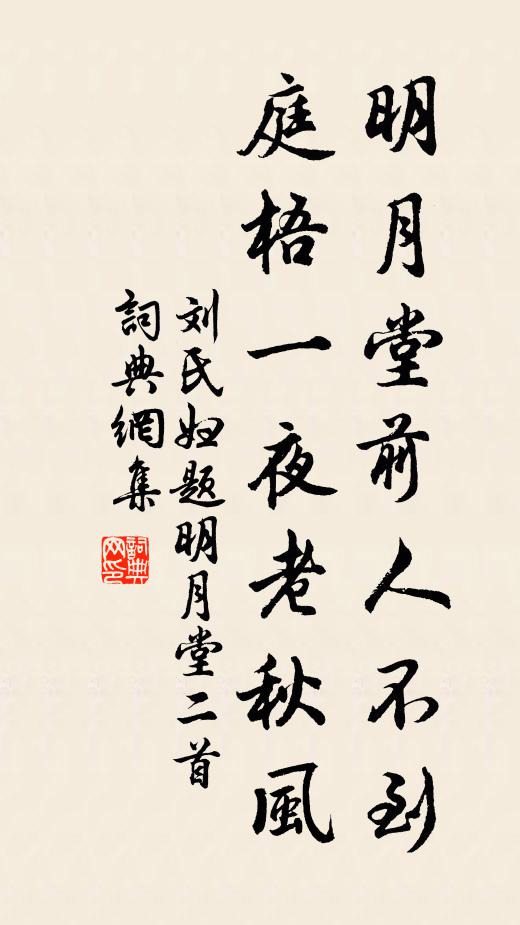 明月堂前人不到
庭梧一夜老秋風
刘氏妇题明月堂二首
詞典網集
詞典网印